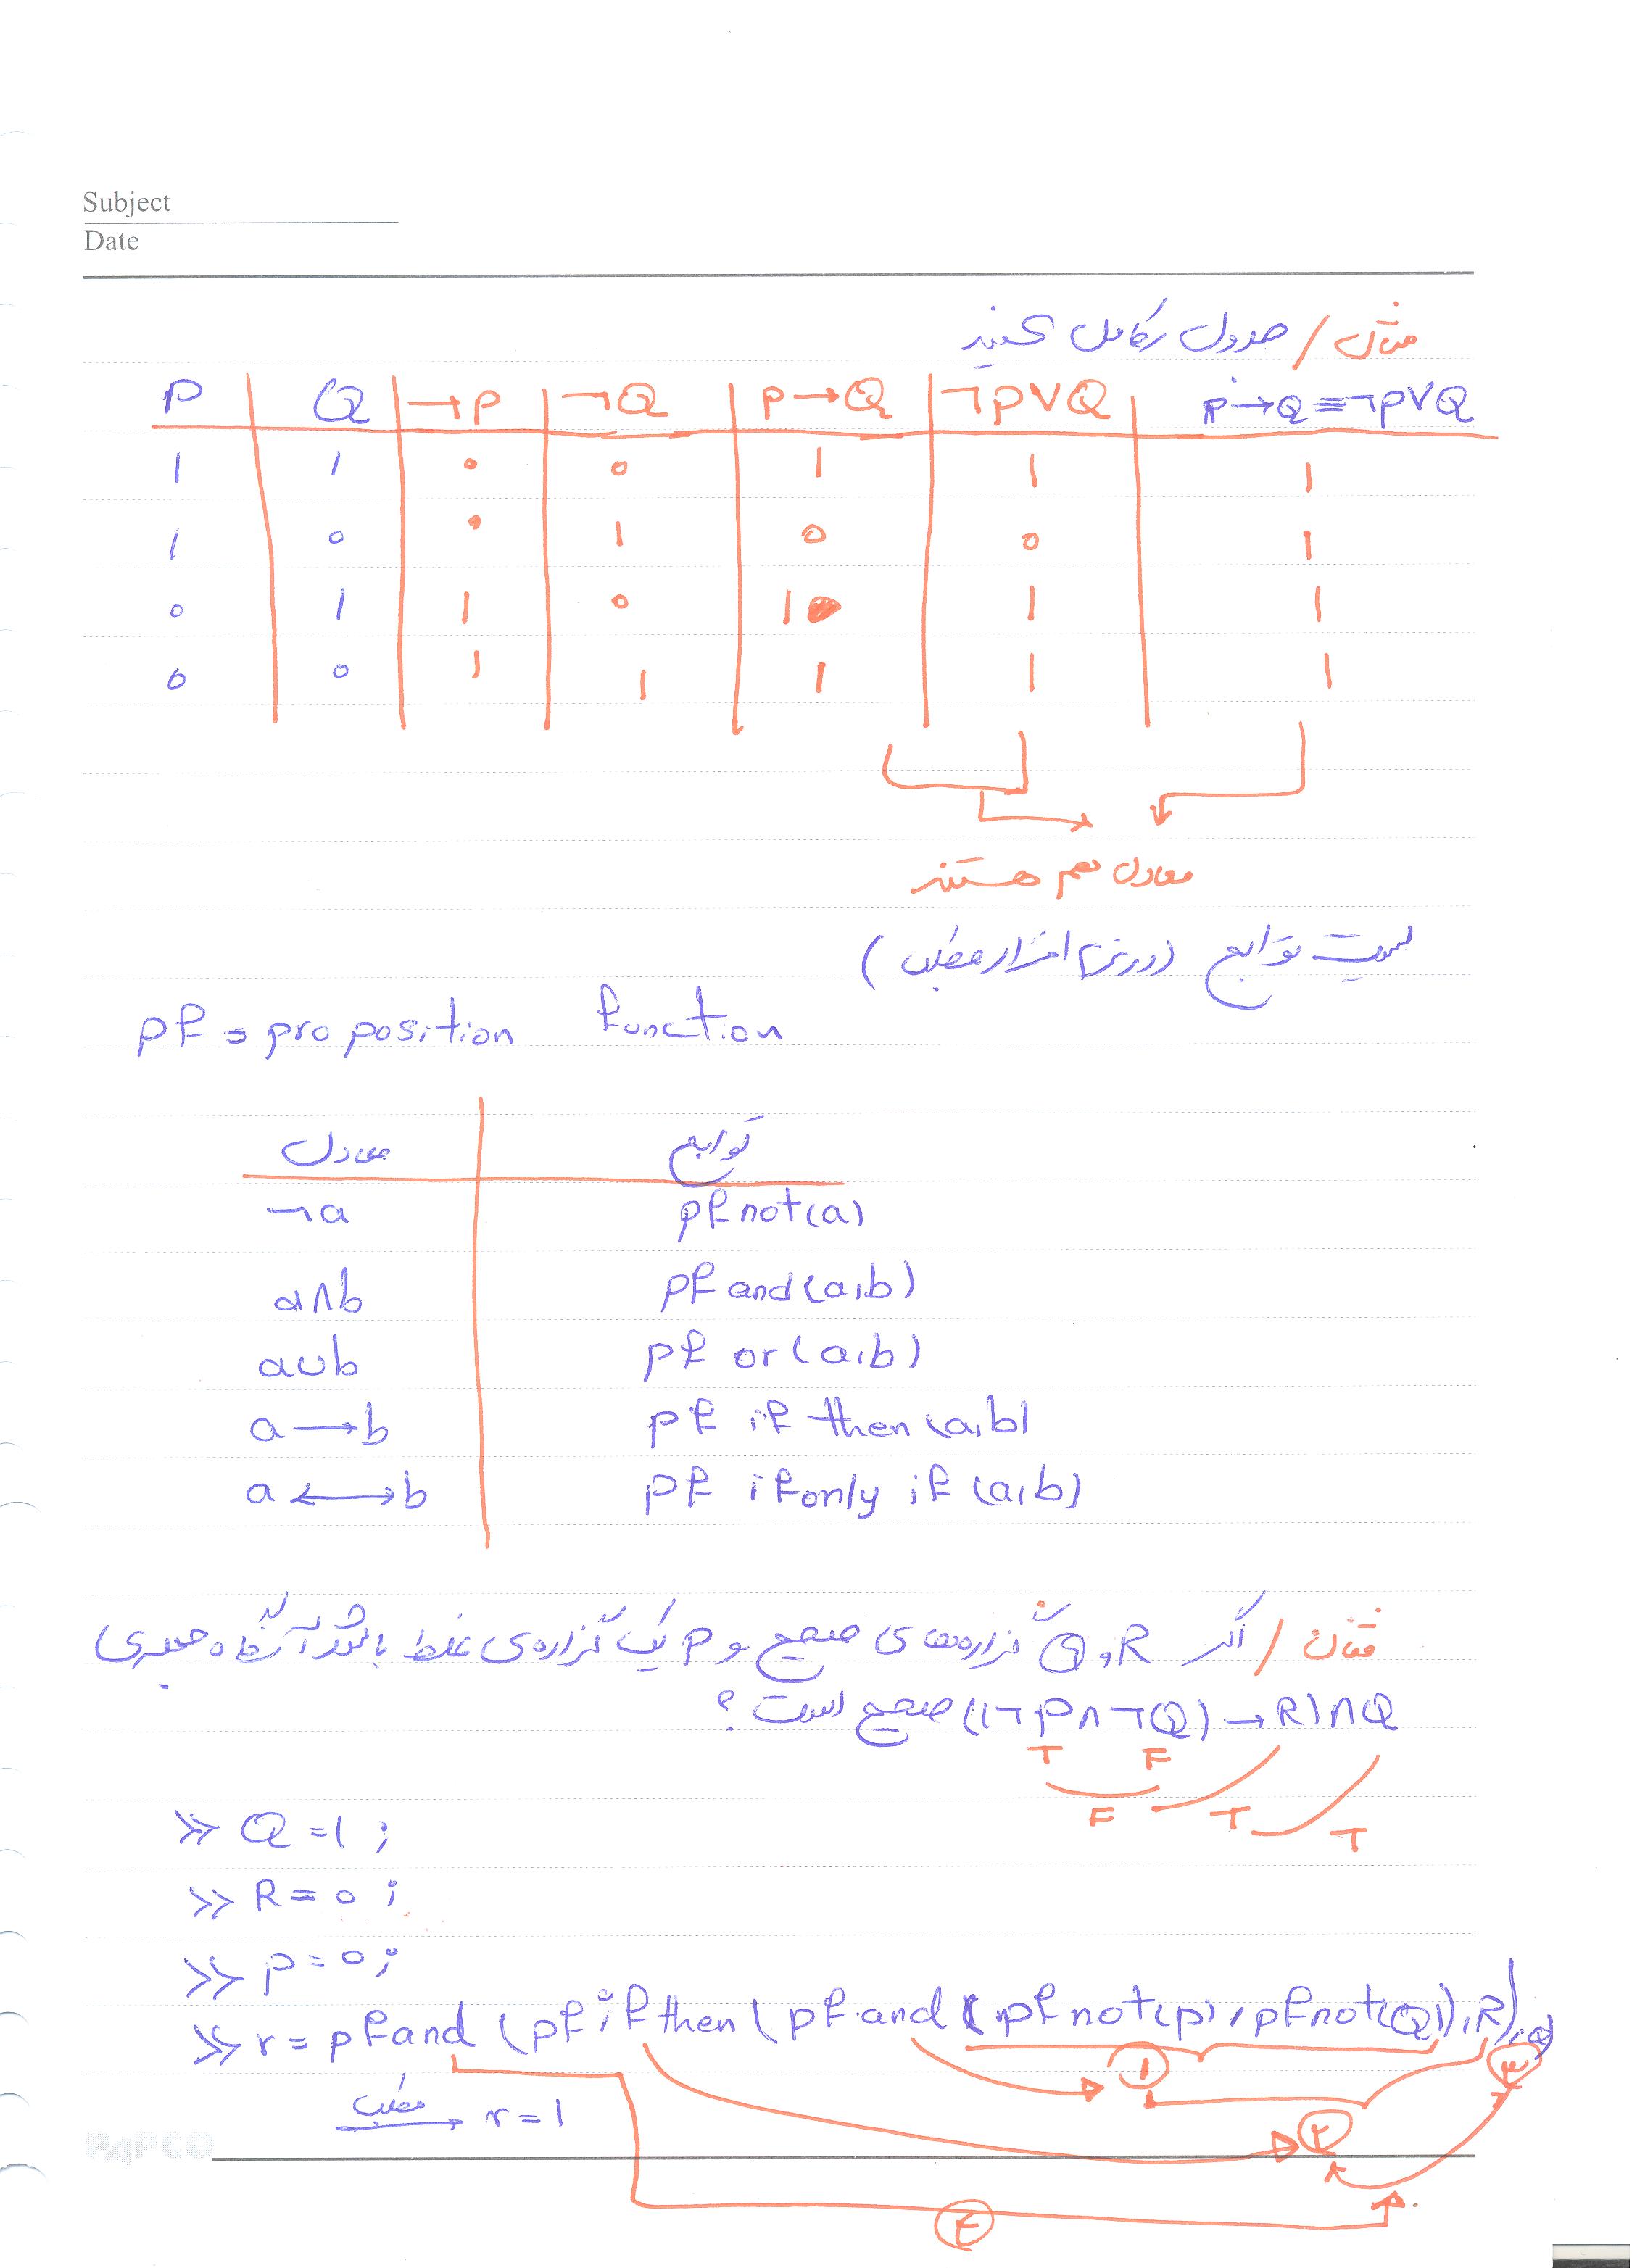 Subject
Date
مثال / جدول را کامل کنید
P Q ¬P ¬Q P→Q ¬P∨Q P→Q≡¬P∨Q
1 1 0 0 1 1 1
1 0 0 1 0 0 1
0 1 1 0 1 1 1
0 0 1 1 1 1 1
معادل هم هستند
لیست توابع (در نرم افزار مطلب)
pf = proposition function
معادل توابع
¬a pf not(a)
a∧b pf and(a,b)
a∪b pf or(a,b)
a→b pf if then(a,b)
a↔b pf if only if (a,b)
مثال / اگر R و Q گزاره‌های صحیح و P یک گزاره‌ی غلط باشد آنگاه
((¬P∧¬Q)→R)∧Q صحیح است؟
T F
F T T
>> Q=1;
>> R=0;
>> P=0;
>> r=pfand(pfifthen(pfand(pfnot(p),pfnot(Q)),R),Q)
مطلب → r=1
1
۲
۳
۴
PAPCO